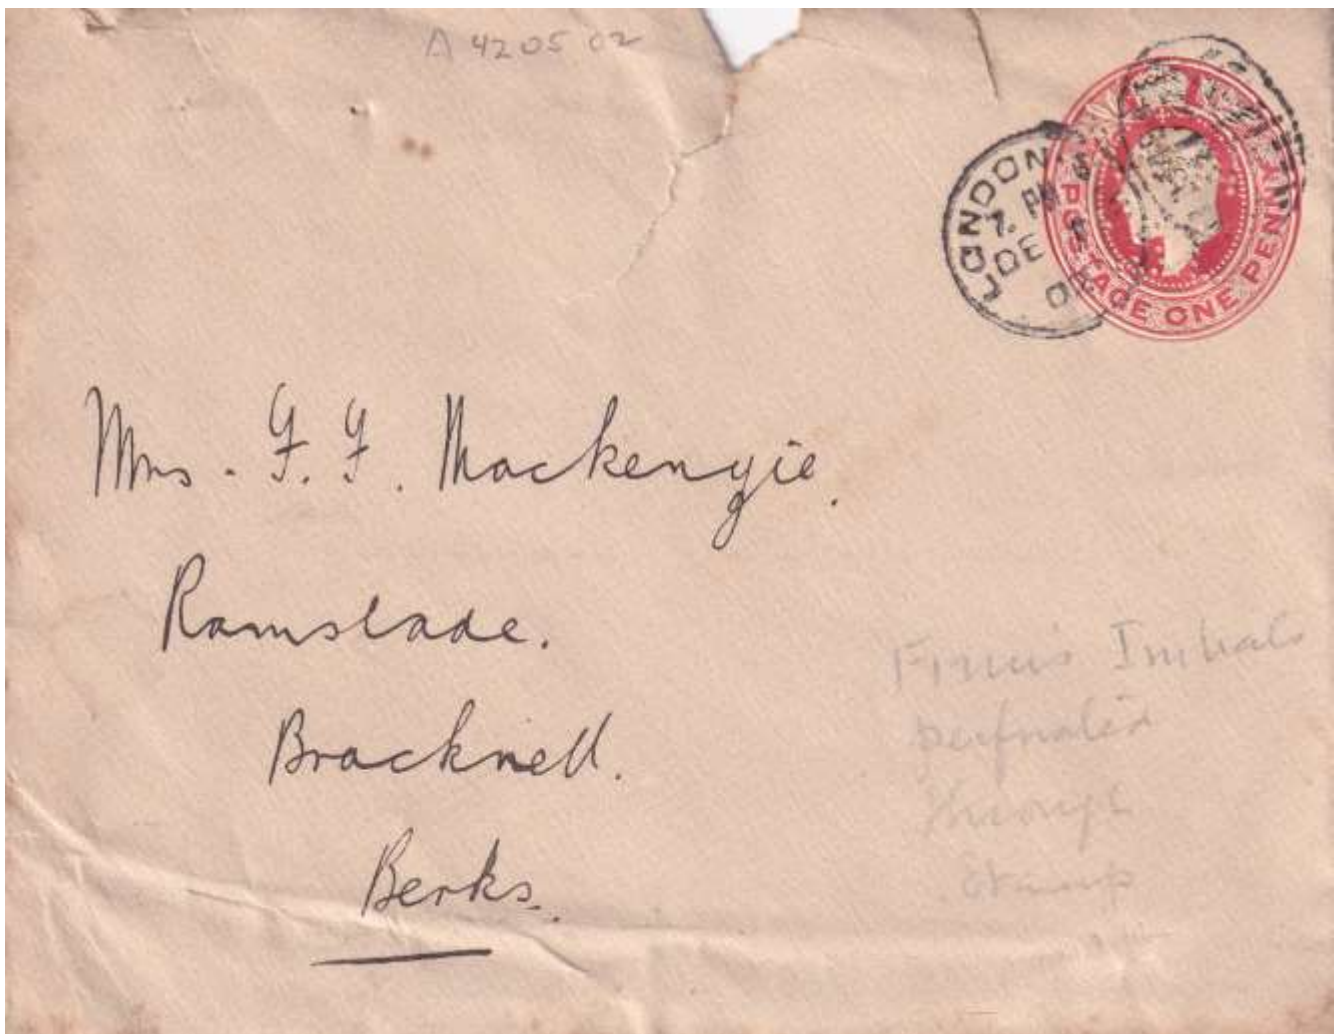 A 4205 02
LONDON
7. PM
DE
POSTAGE ONE PENNY
Mrs. F. F. Mackenzie.
Ramslade.
Bracknell.
Berks.
Firm's Initials
perforated
through
Stamp